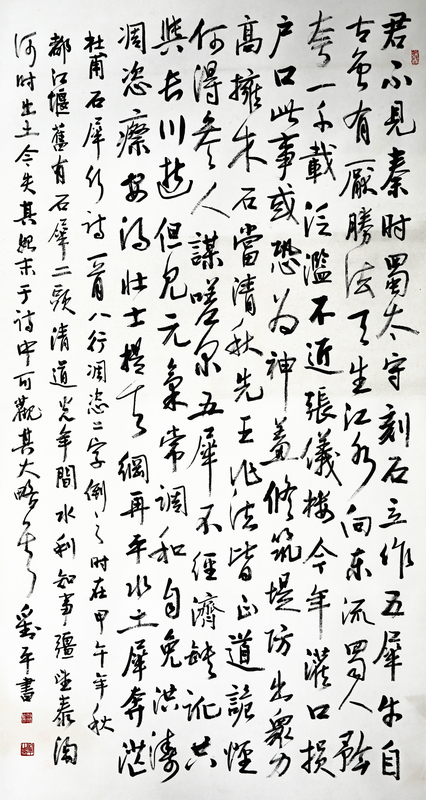 君不見秦時蜀太守刻石立作五犀牛自
古雖有厭勝法天生江水向東流蜀人矜
夸一千載泛濫不近張儀楼今年灌口損
户口此事或恐為神羞修筑堤防出眾力
高擁木石當清秋先王作法皆正道詭怪
何得參人謀嗟尔五犀不經濟缺訛只
與長川逝但見元氣常調和自免洪濤
凋恣瘵安得壮士提天綱再平水土犀奔茫
杜甫石犀行詩一首八行凋恣二字倒之時在甲午年秋
都江堰舊有石犀二頭清道光年間水利知事彊望泰淘
河時出土今失其于詩中可觀其大略矣 劉平書